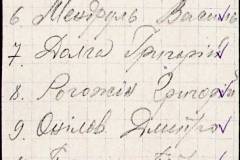 6. Мендруль Василь
7. Долга Григорій
8. Рогожін Григорій
9. Дмитро